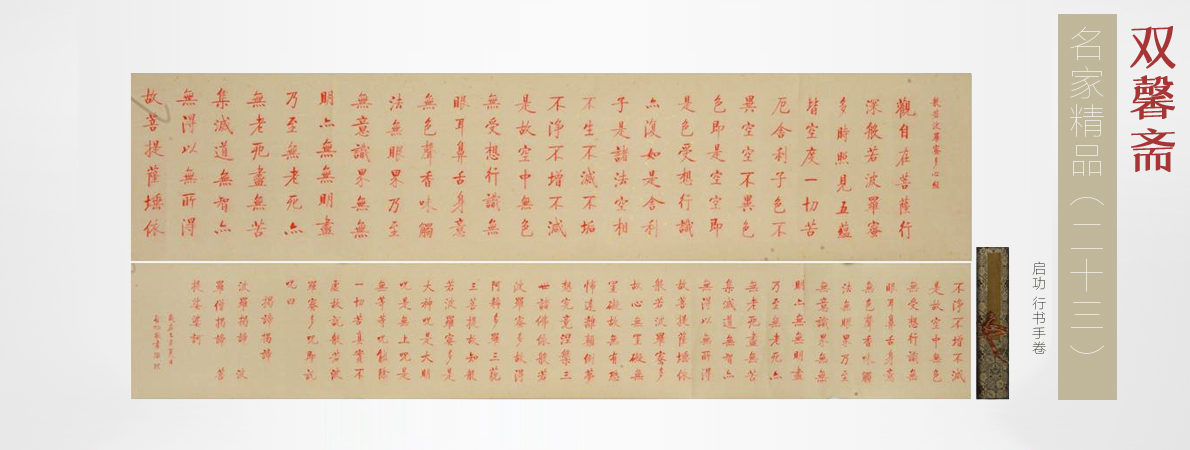 双馨斋
名家精品（二十三）
启功 行书手卷
般若波羅蜜多心經
觀自在菩薩行
深般若波羅蜜
多時照見五蘊
皆空度一切苦
厄舍利子色不
異空空不異色
色即是空空即
是色受想行識
亦復如是舍利
子是諸法空相
不生不滅不垢
不净不增不減
是故空中無色
無受想行識無
眼耳鼻舌身意
無色聲香味觸
法無眼界乃至
無意識界無無
明亦無無明盡
乃至無老死亦
無老死盡無苦
集滅道無智亦
無得以無所得
故菩提薩埵依
不净不增不減
是故空中無色
無受想行識無
眼耳鼻舌身意
無色聲香味觸
法無眼界乃至
無意識界無無
明亦無無明盡
乃至無老死亦
無老死盡無苦
集滅道無智亦
無得以無所得
故菩提薩埵依
般若波羅蜜多
故心無罣礙無
罣礙故無有恐
怖遠離顛倒夢
想究竟涅槃三
世諸佛依般若
波羅蜜多故得
阿耨多羅三藐
三菩提故知般
若波羅蜜多是
大神咒是大明
咒是無上咒是
無等等咒能除
一切苦真實不
虛故說般若波
羅蜜多咒即說
咒曰
揭諦揭諦
波羅揭諦 波
羅僧揭諦 菩
提娑婆訶